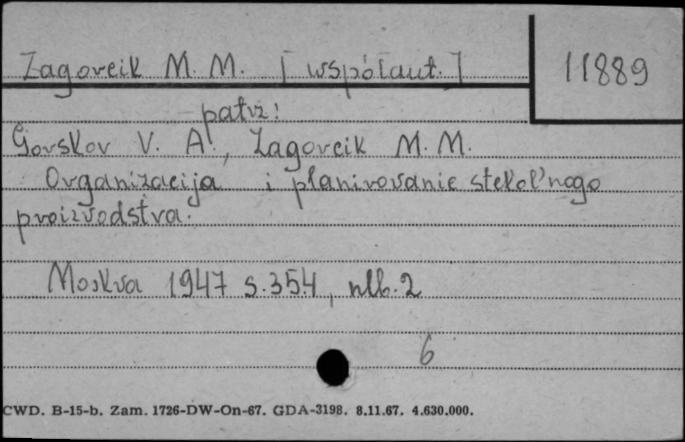 Zagorcik M. M. [współaut.]
11889
patrz:
Gorskov V. A., Zagorcik M. M.
Organizacija i planirovanie stekol'nogo
proizvodstva.
Moskva 1947 s. 354, nlb. 2
6
CWD. B-15-b. Zam. 1726-DW-On-67. GDA-3198. 8.11.67. 4.630.000.